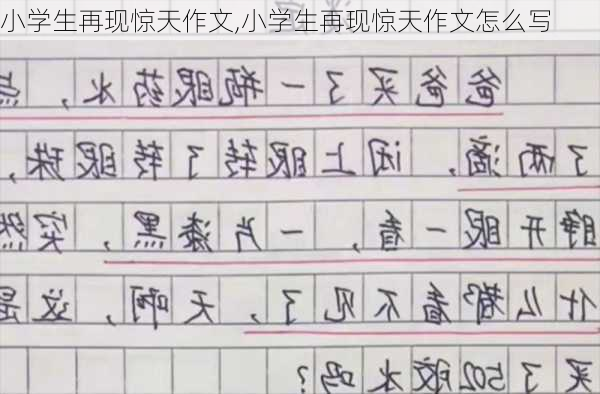 小学生再现惊天作文,小学生再现惊天作文怎么写
爸爸买了一瓶眼药水，点
了两滴，闭上眼转了转眼珠，
睁开眼一看，一片漆黑，突然
什么都看不见了，天啊，这是
买了502胶水吗？